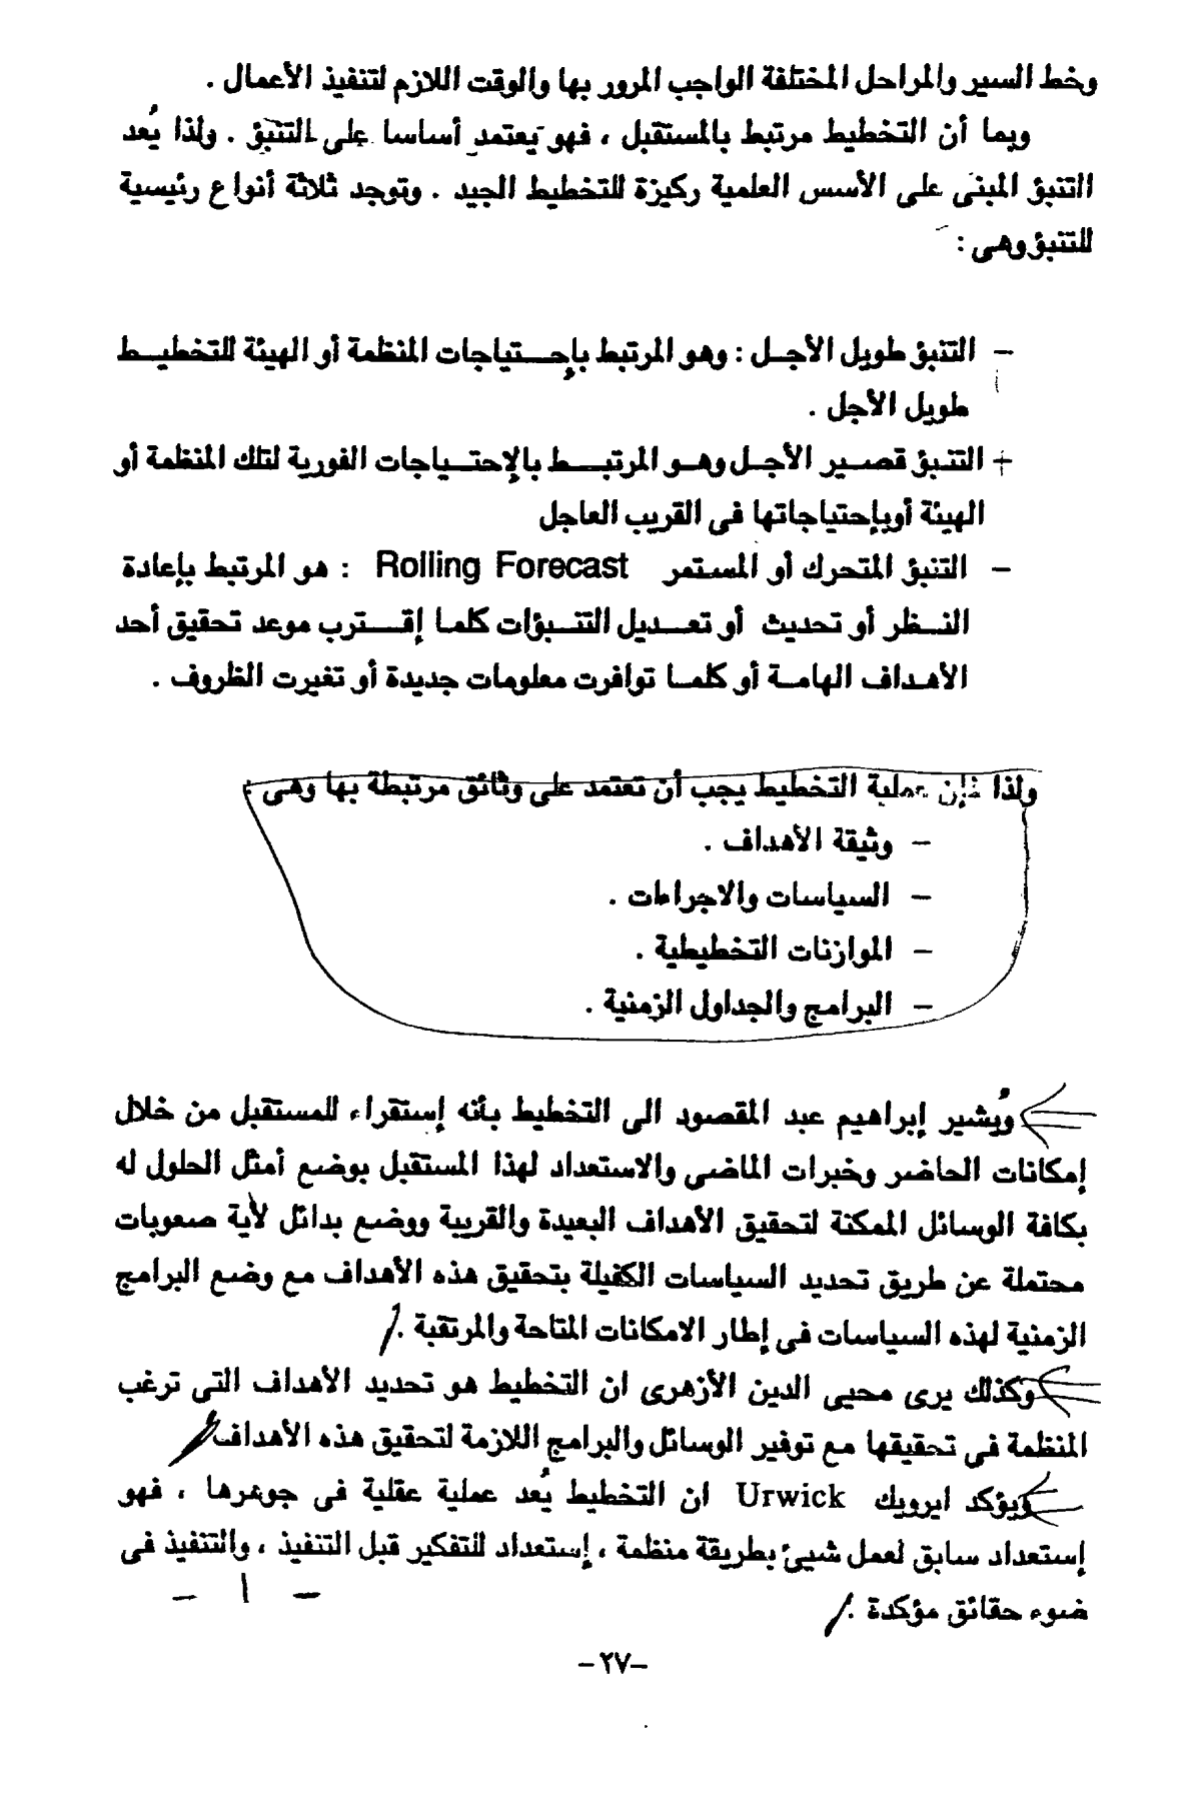 وخط السير والمراحل المختلفة الواجب المرور بها والوقت اللازم لتنفيذ الأعمال .
وبما أن التخطيط مرتبط بالمستقبل ، فهو يعتمد أساسا على التنبؤ . ولذا يُعد
التنبؤ المبنى على الأسس العلمية ركيزة للتخطيط الجيد . وتوجد ثلاثة أنواع رئيسية
للتنبؤ وهى :
– التنبؤ طويل الأجل : وهو المرتبط بإحتياجات المنظمة أو الهيئة للتخطيط
طويل الأجل .
+ التنبؤ قصير الأجل وهو المرتبط بالإحتياجات الفورية لتلك المنظمة أو
الهيئة أوبإحتياجاتها فى القريب العاجل
– التنبؤ المتحرك أو المستمر Rolling Forecast : هو المرتبط بإعادة
النظر أو تحديث أو تعديل التنبؤات كلما إقترب موعد تحقيق أحد
الأهداف الهامة أو كلما توافرت معلومات جديدة أو تغيرت الظروف .
ولذا فإن عملية التخطيط يجب أن تعتمد على وثائق مرتبطة بها وهى :
– وثيقة الأهداف .
– السياسات والاجراءات .
– الموازنات التخطيطية .
– البرامج والجداول الزمنية .
ويُشير إبراهيم عبد المقصود الى التخطيط بأنه إستقراء للمستقبل من خلال
إمكانات الحاضر وخبرات الماضى والاستعداد لهذا المستقبل بوضع أمثل الحلول له
بكافة الوسائل الممكنة لتحقيق الأهداف البعيدة والقريبة ووضع بدائل لأية صعوبات
محتملة عن طريق تحديد السياسات الكفيلة بتحقيق هذه الأهداف مع وضع البرامج
الزمنية لهذه السياسات فى إطار الامكانات المتاحة والمرتقبة ./
وكذلك يرى محيى الدين الأزهرى ان التخطيط هو تحديد الأهداف التى ترغب
المنظمة فى تحقيقها مع توفير الوسائل والبرامج اللازمة لتحقيق هذه الأهداف/
ويؤكد ايرويك Urwick ان التخطيط يُعد عملية عقلية فى جوهرها ، فهو
إستعداد سابق لعمل شيئ بطريقة منظمة ، إستعداد للتفكير قبل التنفيذ ، والتنفيذ فى
ضوء حقائق مؤكدة ./
– ا –
–٢٧–